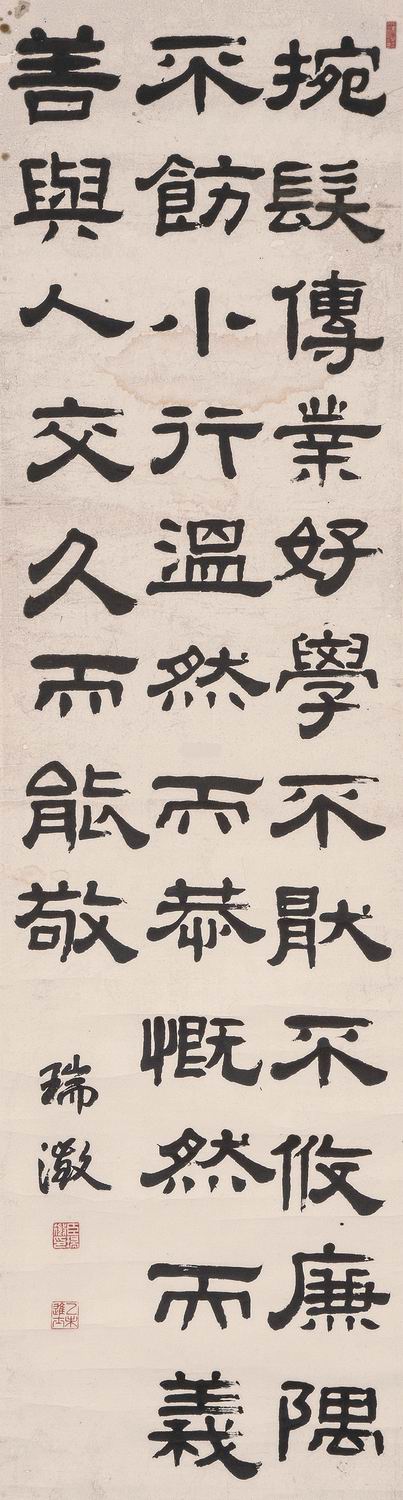 捥髮傳業好學不猒不攸廉隅
不飭小行溫然而恭慨然而義
善與人交久而能敬
瑞澂